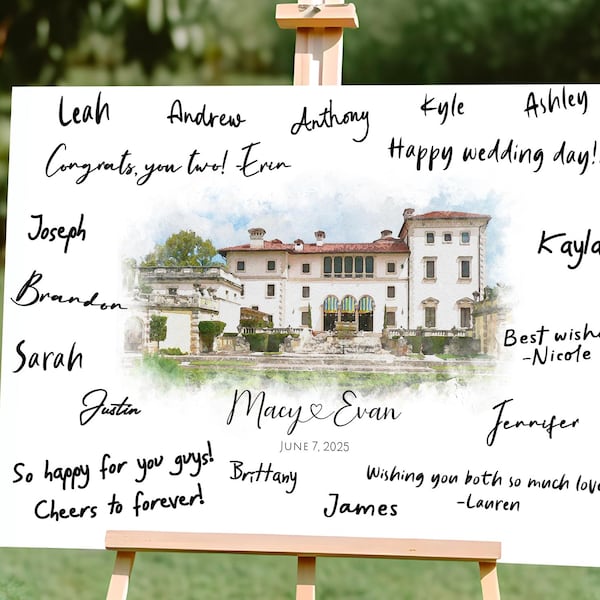 Leah Andrew Anthony Kyle Ashley
Congrats, you two! -Erin
Happy wedding day!
Joseph
Kayla
Brandon
Sarah
Best wishe
-Nicole
Justin
Macy Evan
June 7, 2025
Jennifer
So happy for you guys!
Cheers to forever!
Brittany
James
Wishing you both so much love
-Lauren